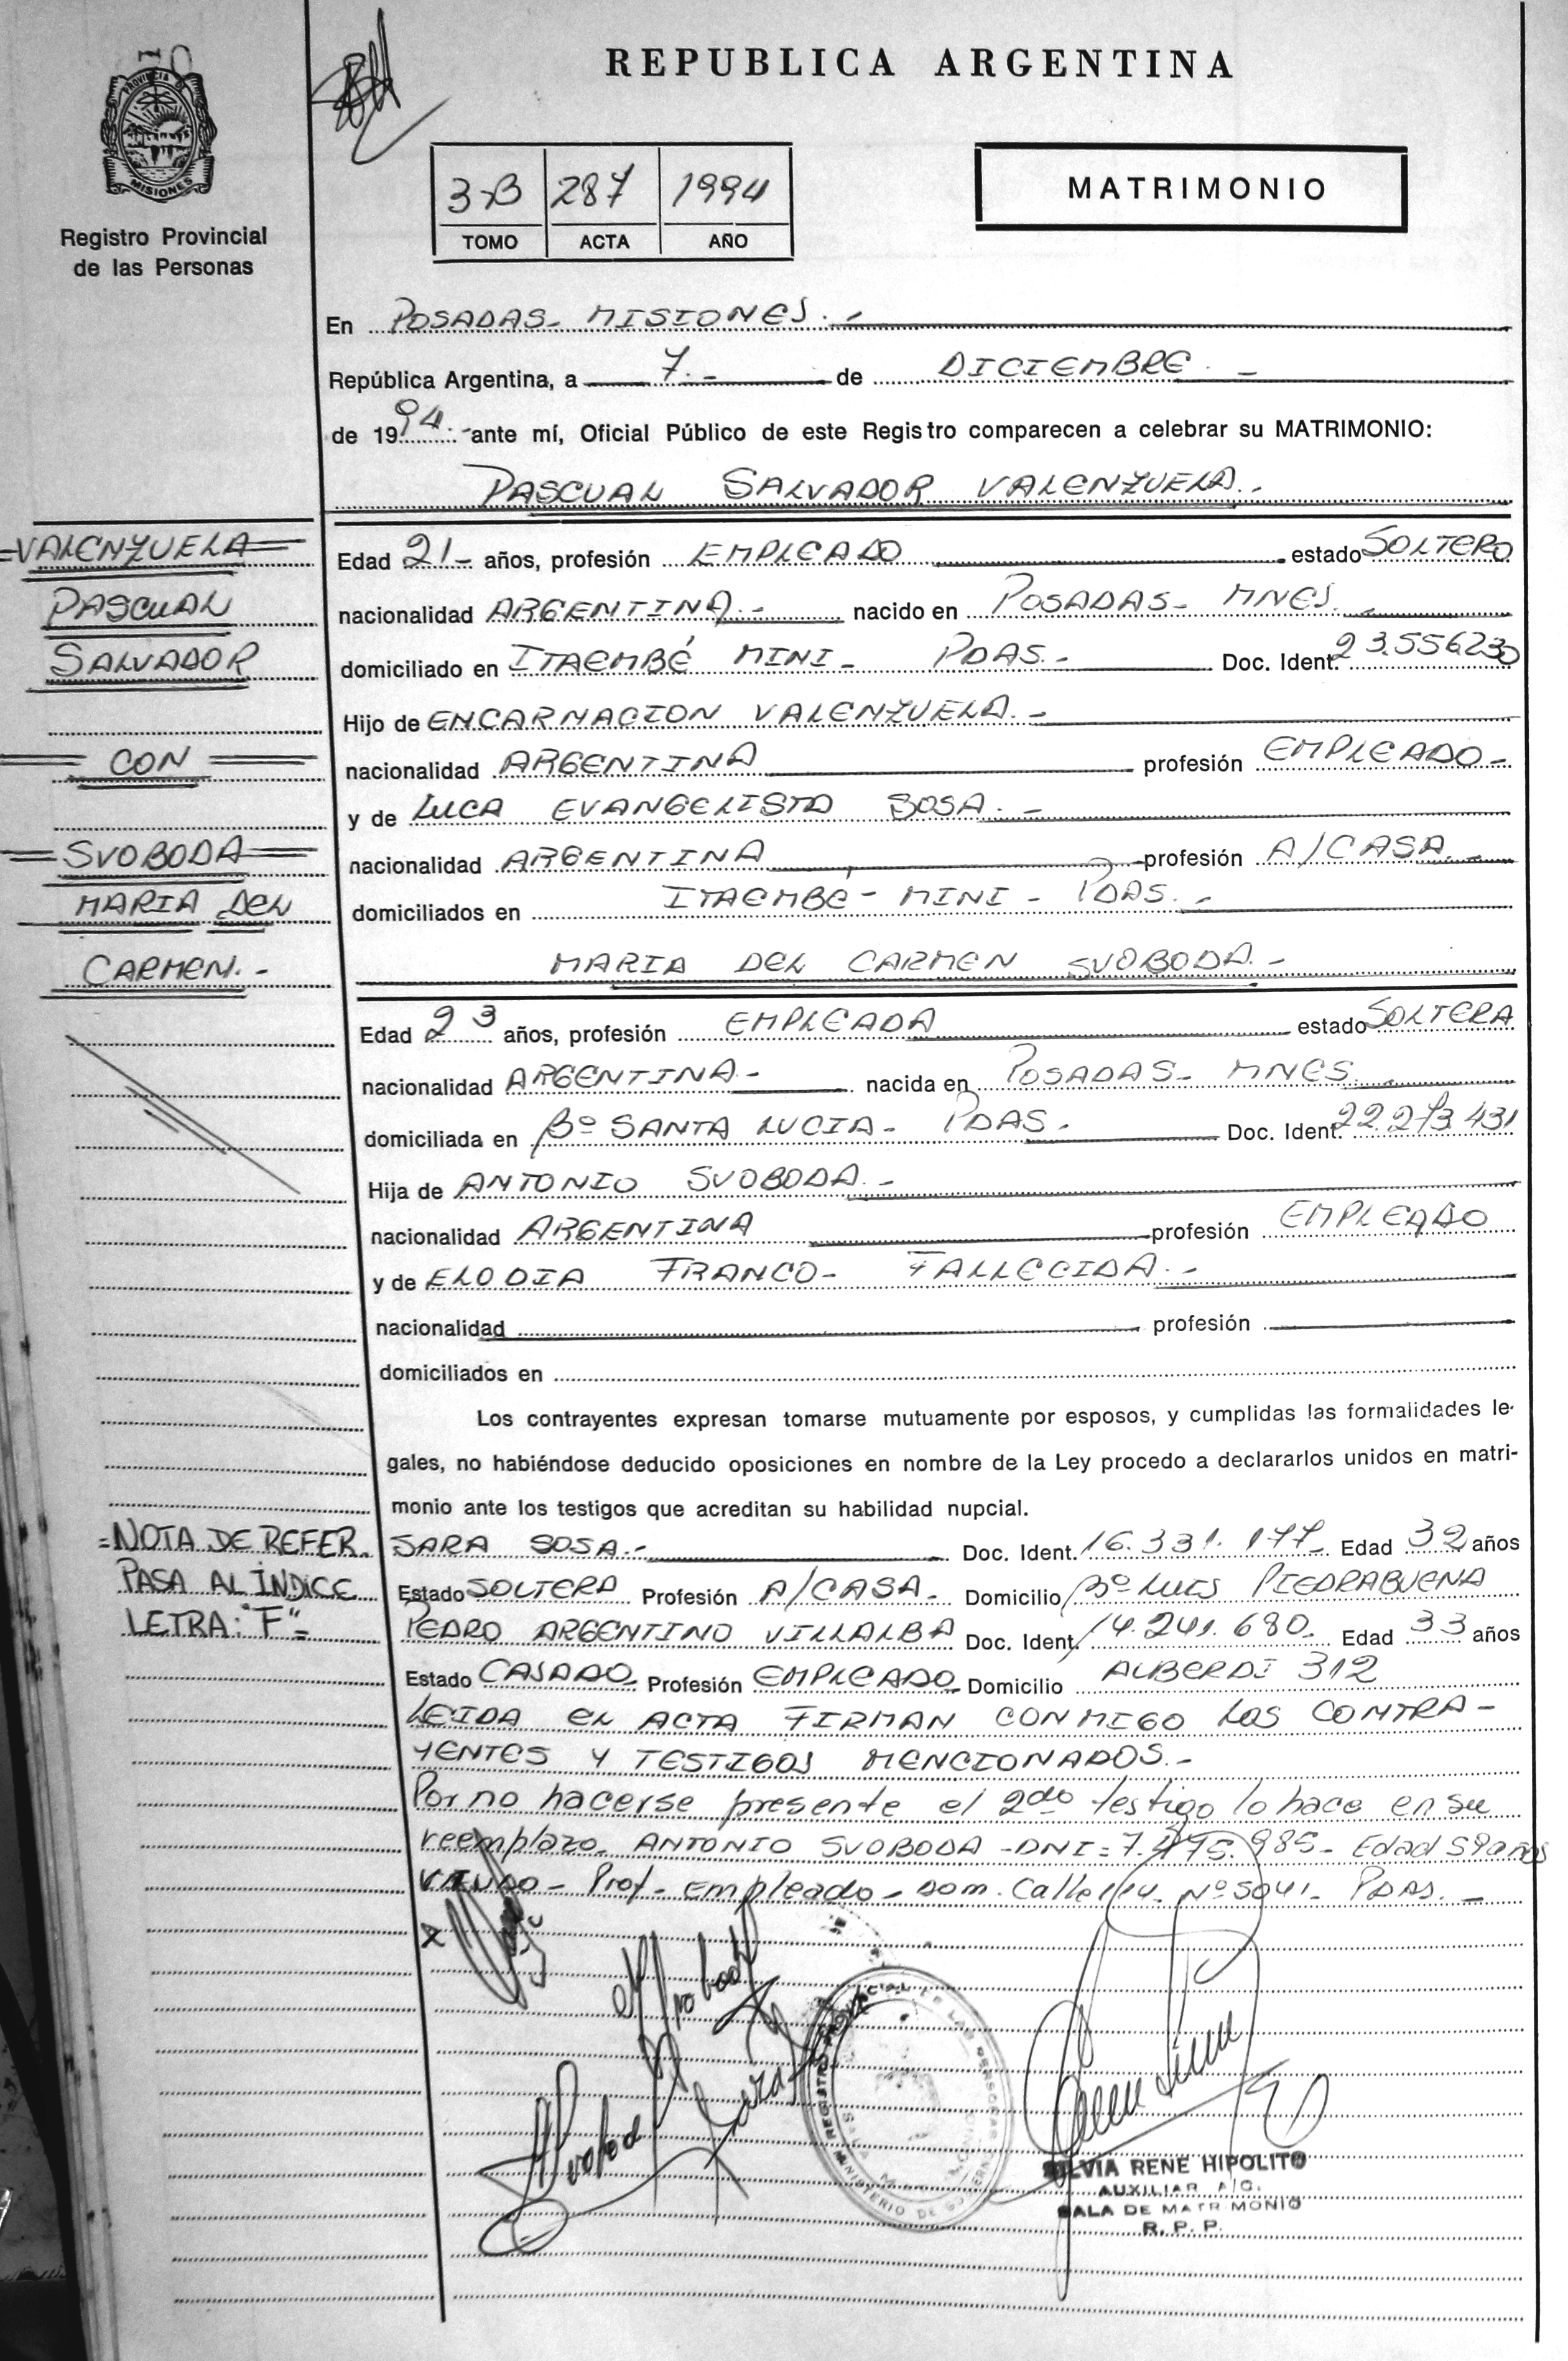 REPUBLICA ARGENTINA
PROVINCIA DE
MISIONES
Registro Provincial
de las Personas
3-B 287 1994
TOMO ACTA AÑO
MATRIMONIO
En POSADAS- MISIONES.-
República Argentina, a 7.- de DICIEMBRE.-
de 1994.- ante mí, Oficial Público de este Registro comparecen a celebrar su MATRIMONIO:
PASCUAL SALVADOR VALENZUELA.-
=VALENZUELA=
PASCUAL
SALVADOR
= CON =
=SVOBODA=
MARIA DEL
CARMEN.-
Edad 21- años, profesión EMPLEADO estado SOLTERO
nacionalidad ARGENTINA.- nacido en POSADAS- MNES.-
domiciliado en ITAEMBÉ MINI- PDAS.- Doc. Ident. 23.556.230
Hijo de ENCARNACION VALENZUELA.-
nacionalidad ARGENTINA profesión EMPLEADO-
y de LUCA EVANGELISTA SOSA.-
nacionalidad ARGENTINA profesión A/CASA.-
domiciliados en ITAEMBÉ- MINI- PDAS.-
MARIA DEL CARMEN SVOBODA.-
Edad 23 años, profesión EMPLEADA estado SOLTERA
nacionalidad ARGENTINA.- nacida en POSADAS- MNES.-
domiciliada en Bº SANTA LUCIA- PDAS.- Doc. Ident. 22.273.431
Hija de ANTONIO SVOBODA.-
nacionalidad ARGENTINA profesión EMPLEADO
y de ELODIA FRANCO- FALLECIDA.-
nacionalidad profesión
domiciliados en
Los contrayentes expresan tomarse mutuamente por esposos, y cumplidas las formalidades le-
gales, no habiéndose deducido oposiciones en nombre de la Ley procedo a declararlos unidos en matri-
monio ante los testigos que acreditan su habilidad nupcial.
=NOTA DE REFER.
PASA AL ÍNDICE
LETRA: "F"=
SARA SOSA.- Doc. Ident. 16.331.177- Edad 32 años
Estado SOLTERA Profesión A/CASA. Domicilio Bº LUIS PIEDRABUENA
PEDRO ARGENTINO VILLALBA Doc. Ident. 14.241.680. Edad 33 años
Estado CASADO- Profesión EMPLEADO- Domicilio ALBERDI 312
LEIDA EL ACTA FIRMAN CONMIGO LOS CONTRA-
YENTES Y TESTIGOS MENCIONADOS.-
Por no hacerse presente el 2do testigo lo hace en su
reemplazo- ANTONIO SVOBODA -DNI= 7.475.985- Edad 59 años
VIUDO- Prof- empleado- dom. Calle 114- Nº 5041- PDAS.-
X
REGISTRO PROVINCIAL DE LAS PERSONAS
MINISTERIO DE GOBIERNO
SILVIA RENE HIPOLITO
AUXILIAR A/C.
SALA DE MATRIMONIO
R. P. P.